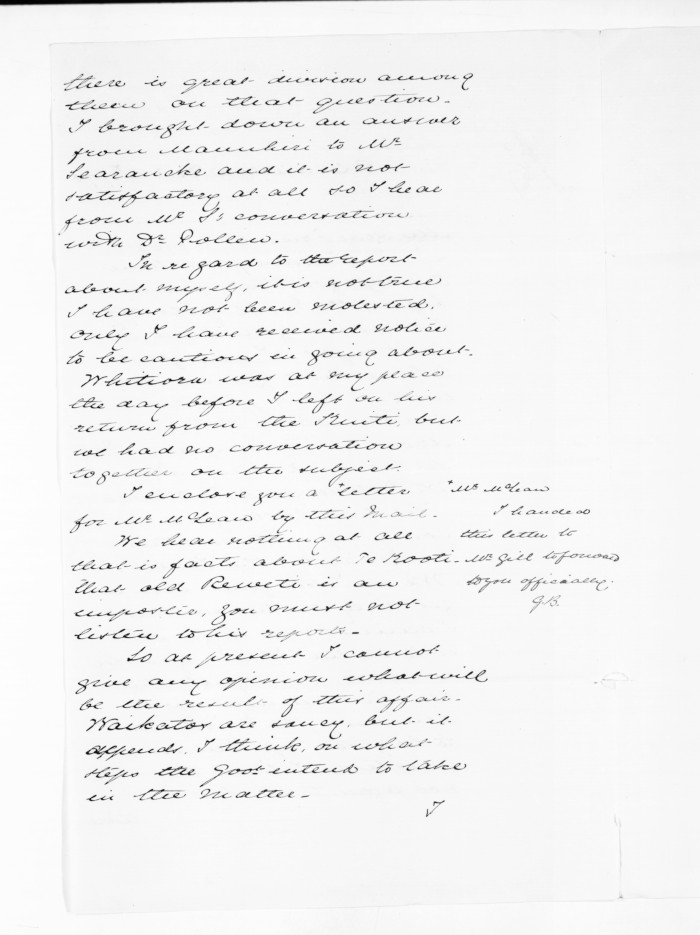 there is great division among
them on that question.
I brought down an answer
from Manuhiri to Mr
Searancke and it is not
satisfactory at all so I hear
from Mr S's conversation
with Dr Pollen.
In regard to the report
about myself, it is not true
I have not been molested,
only I have received notice
to be cautious in going about.
Whitiora was at my place
the day before I left on his
return from the Kuiti, but
we had no conversation
together on the subject.
I enclose you a *letter
for Mr McLean by this Mail.
We hear nothing at all
that is facts about Te Kooti.
That old Reweti is an
imposter, you must not
listen to his reports.
So at present I cannot
give any opinion what will
be the result of this affair.
Waikatos are saucy, but it
depends, I think, on what
steps the Govt intend to take
in the matter.
I
*Mr McLean
I handed
this letter to
Mr Gill to forward
to you officially.
GB.